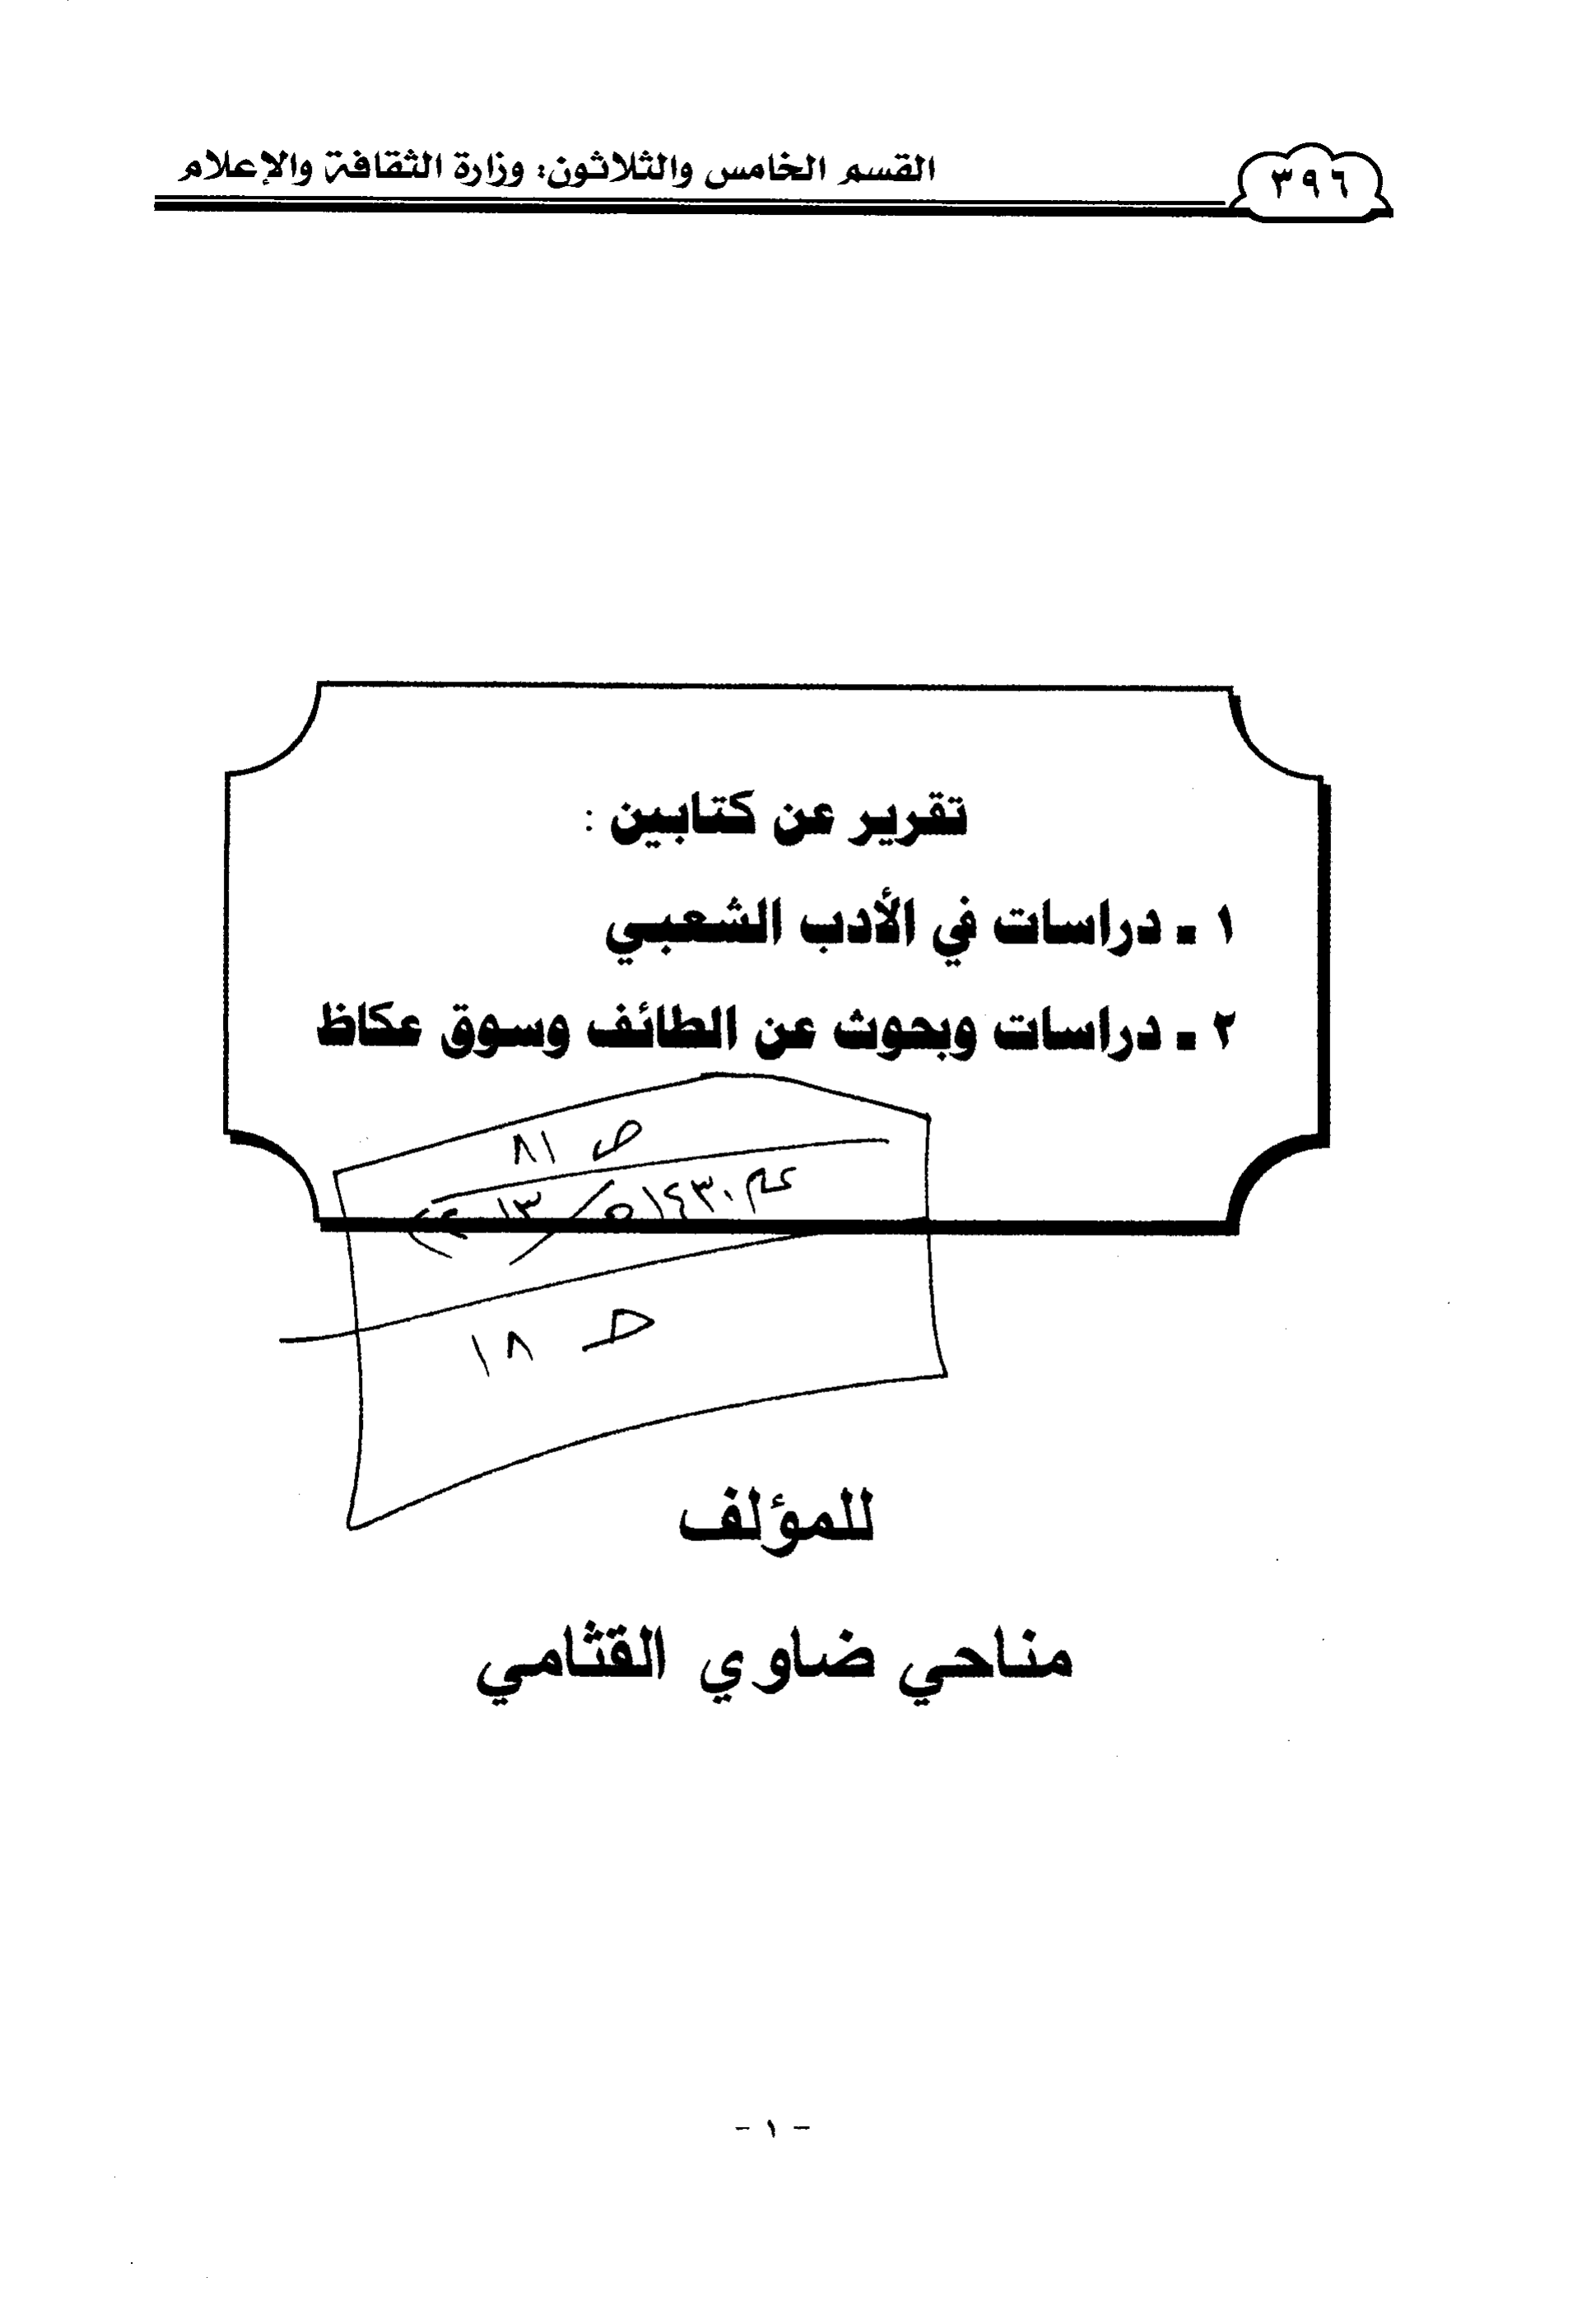 ٣٩٦
القسم الخامس والثلاثون: وزارة الثقافة والإعلام
تقرير عن كتابين :
١ ـ دراسات في الأدب الشعبي
٢ ـ دراسات وبحوث عن الطائف وسوق عكاظ
ص ٨١
١٤٣٠
١٨
للمؤلف
مناحي ضاوي القثامي
- ١ -